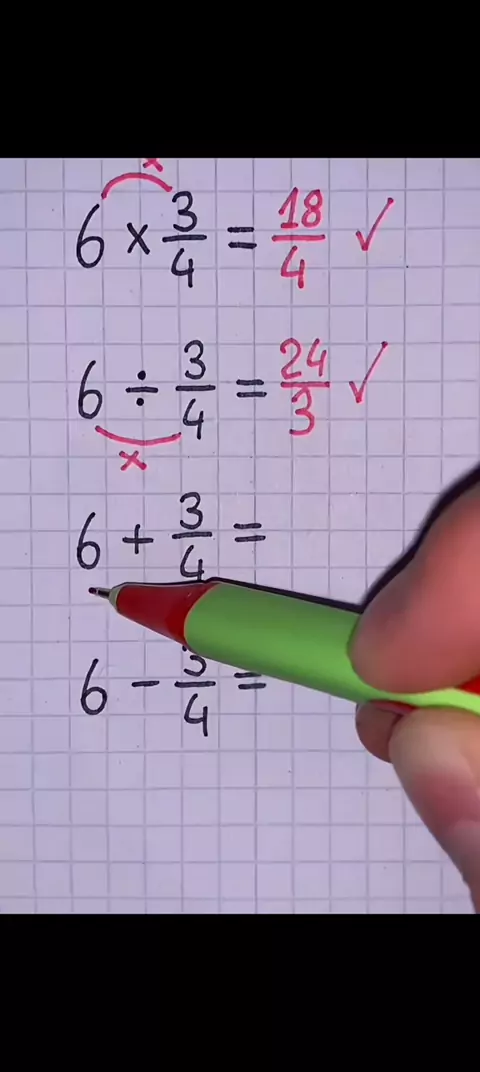 6 × 3/4 = 18/4 ✓
6 ÷ 3/4 = 24/3 ✓
×
6 + 3/4 =
6 - 3/4 =